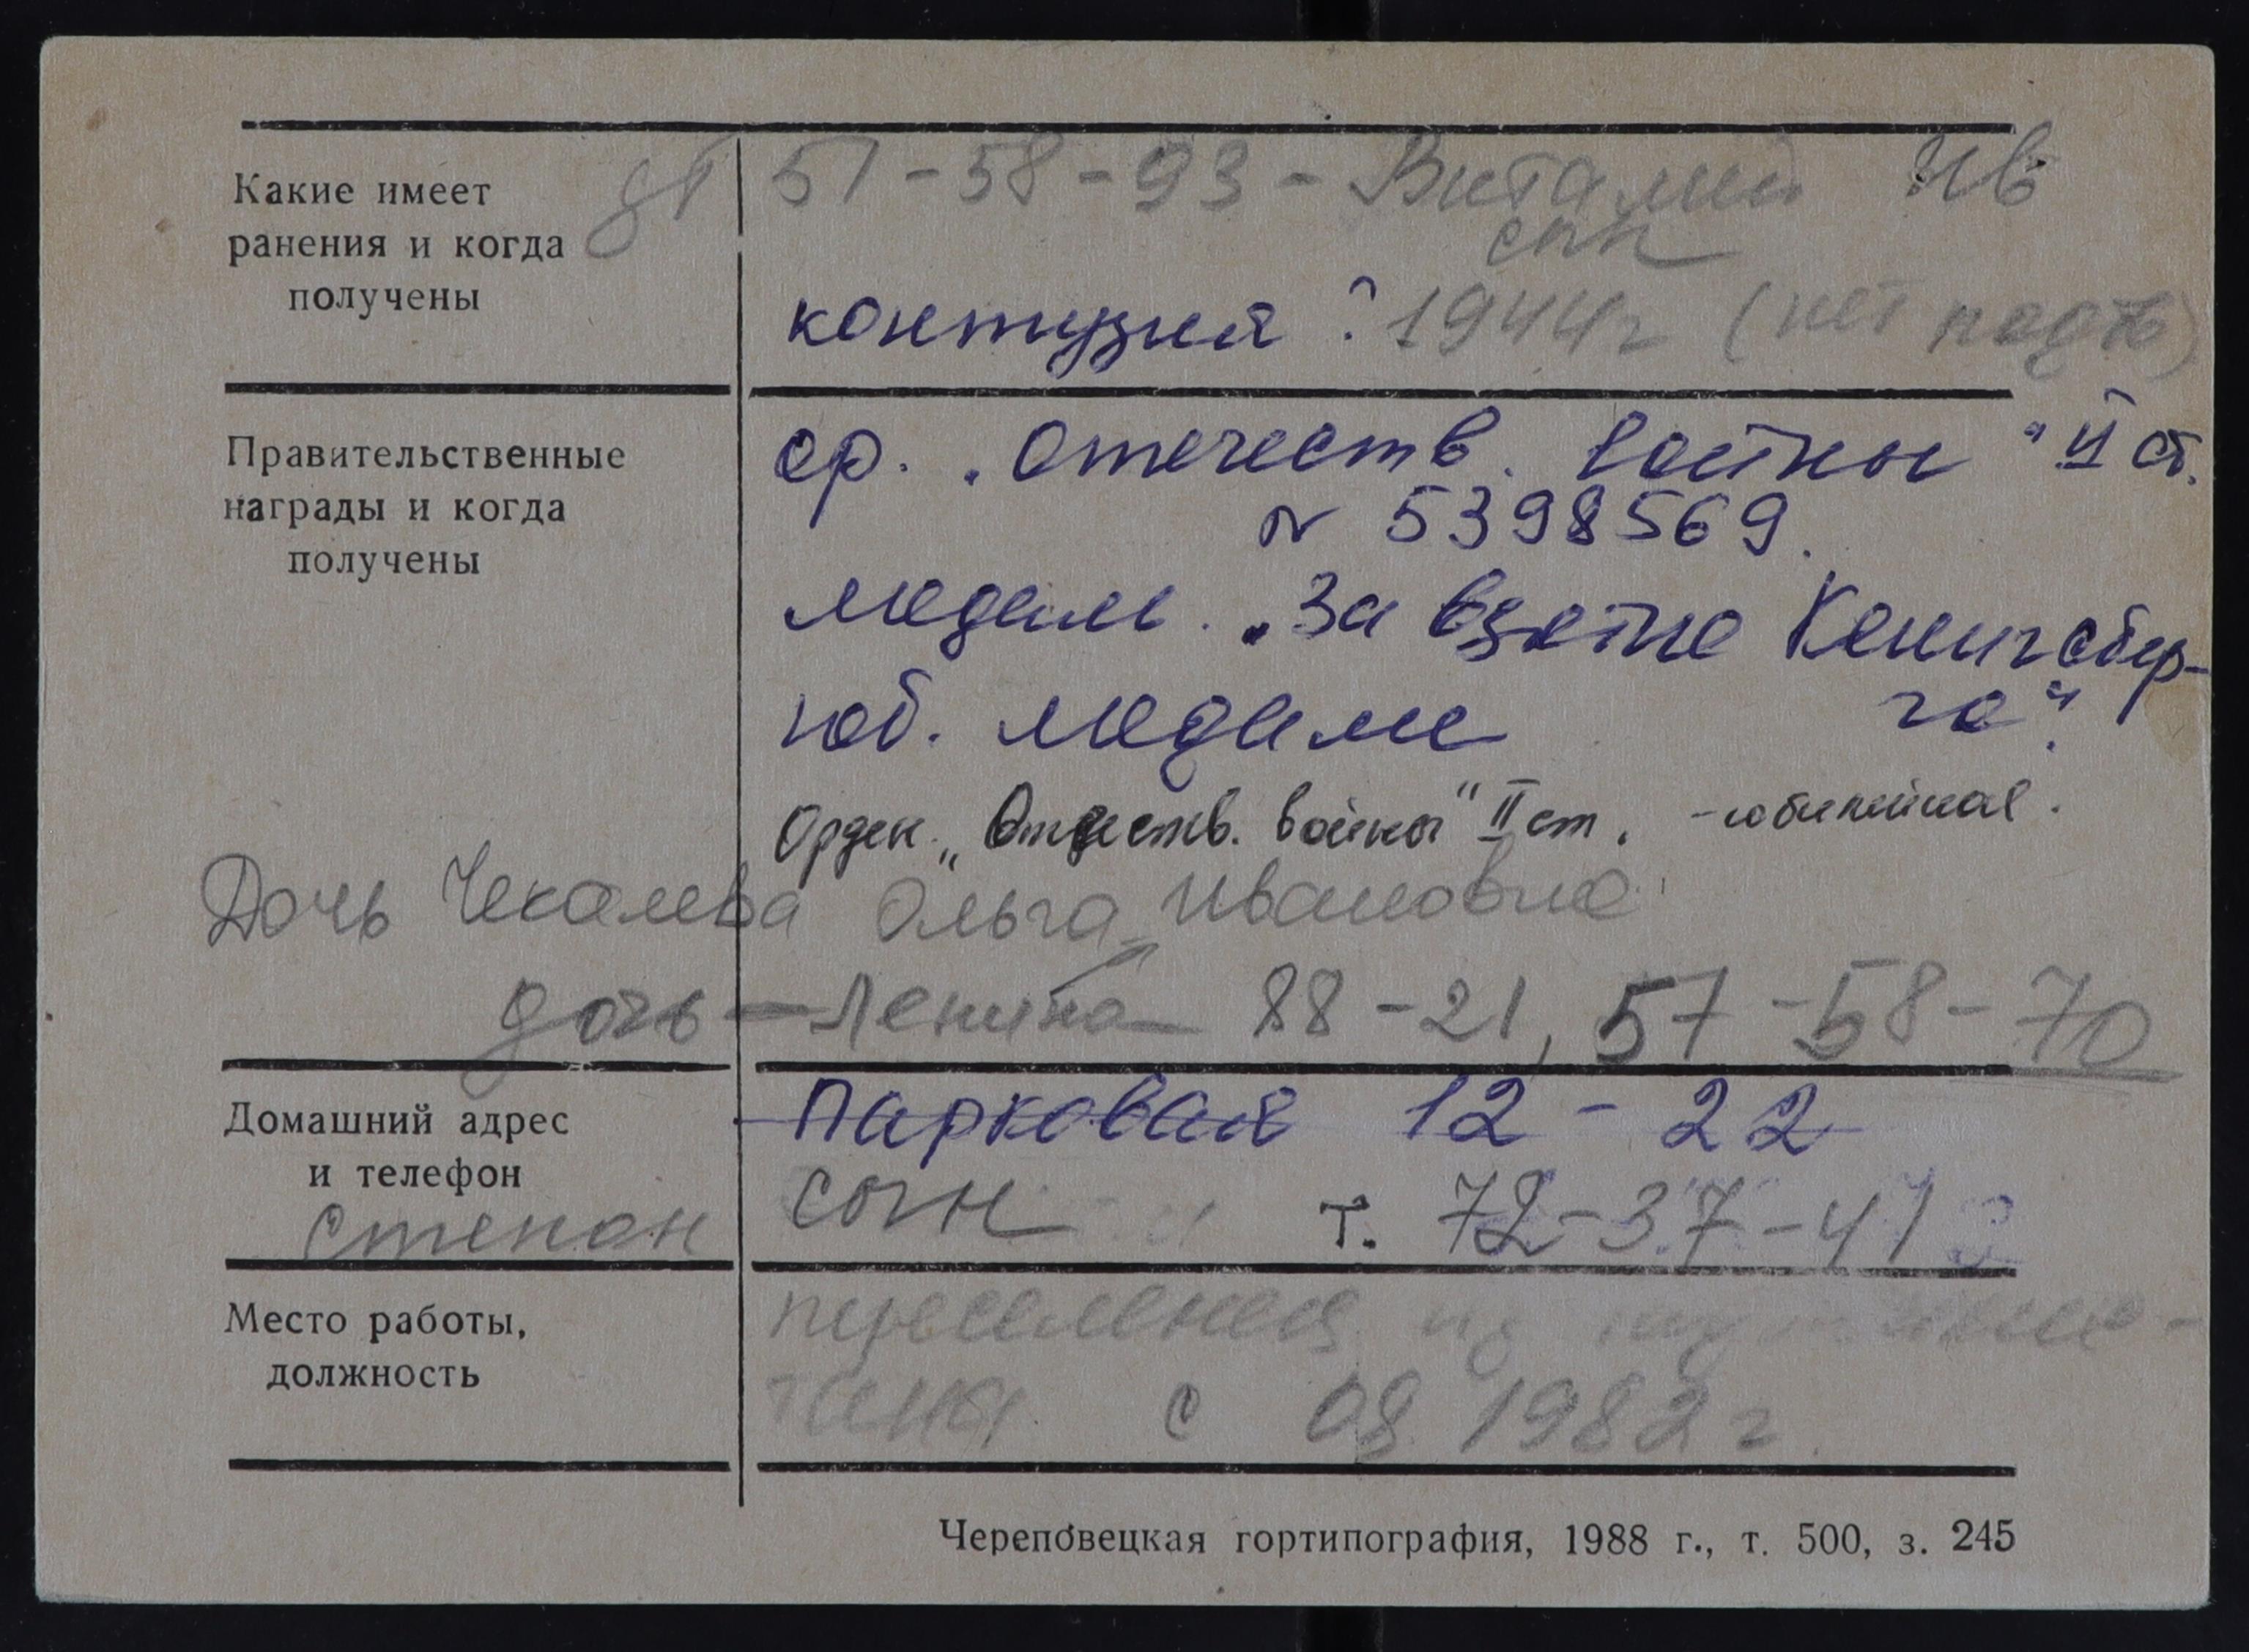 Какие имеет
ранения и когда
получены
дт 51-58-93 - Виталий Ив
сын
контузия ? 1944г (нет подтв)
Правительственные
награды и когда
получены
ор. „Отечеств. войны" II ст.
№ 5398569.
медаль. „За взятие Кенигсбер-
га".
юб. медали
Орден „Отечеств. войны" II ст. - юбилейная.
Дочь Чекалева Ольга Ивановна
дочь - Ленина 88-21, 57-58-70
Домашний адрес
и телефон
Парковая 12-22
Степан сын т. 72-37-41
Место работы,
должность
переселенец из
с 08 1982 г.
Череповецкая гортипография, 1988 г., т. 500, з. 245